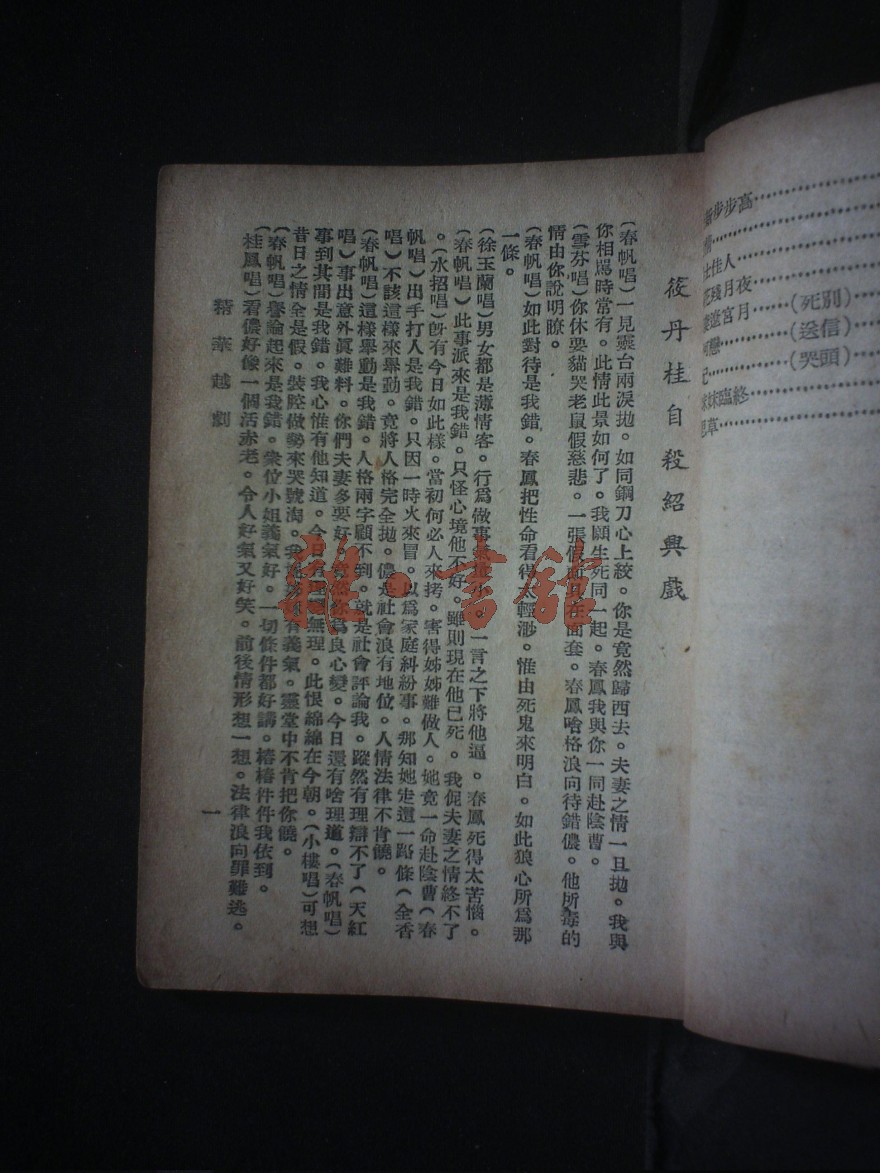 高步步
佳人
夜月殘花
月宮(死別)
(送信)
(哭頭)
終臨妹
草
筱丹桂自殺紹興戲
(春帆唱)一見靈台兩淚拋。如同鋼刀心上絞。你是竟然歸西去。夫妻之情一旦拋。我與
你相罵時常有。此情此景如何了。我願生死同一起。春鳳我與你一同赴陰曹。
(雪芬唱)你休要貓哭老鼠假慈悲。一張假面具在面套。春鳳啥格浪向待錯儂。他所毒的
情由你說明瞭。
(春帆唱)如此對待是我錯。春鳳把性命看得太輕渺。惟由死鬼來明白。如此狼心所為那
一條。
(徐玉蘭唱)男女都是薄情客。行為做事。一言之下將他逼。春鳳死得太苦惱。
(春帆唱)此事派來是我錯。只怪心境他不好。雖則現在他已死。我伲夫妻之情終不了
。(水招唱)旣有今日如此樣。當初何必人來拷。害得姊姊難做人。她竟一命赴陰曹(春
帆唱)出手打人是我錯。只因一時火來冒。以為家庭糾紛事。那知她走這一路條(全香
唱)不該這樣來舉動。竟將人格完全拋。儂是社會浪有地位。人情法律不肯饒。
(春帆唱)這樣舉動是我錯。人格兩字顧不到。就是社會評論我。蹤然有理辯不了(天紅
唱)事出意外眞難料。你們夫妻多要好。竟然你為良心變。今日還有啥理道。(春帆唱)
事到其間是我錯。我心惟有他知道。今日有理無理。此恨綿綿在今朝。(小樓唱)可想
昔日之情全是假。裝腔做勢來哭號淘。我有義氣。靈堂中不肯把你饒。
(春帆唱)譽論起來是我錯。衆位小姐義氣好。一切條件都好講。樁樁件件我依到。
(桂鳳唱)看儂好像一個活赤老。令人好氣又好笑。前後情形想一想。法律浪向罪難逃。
精華越劇
一
雜·書館